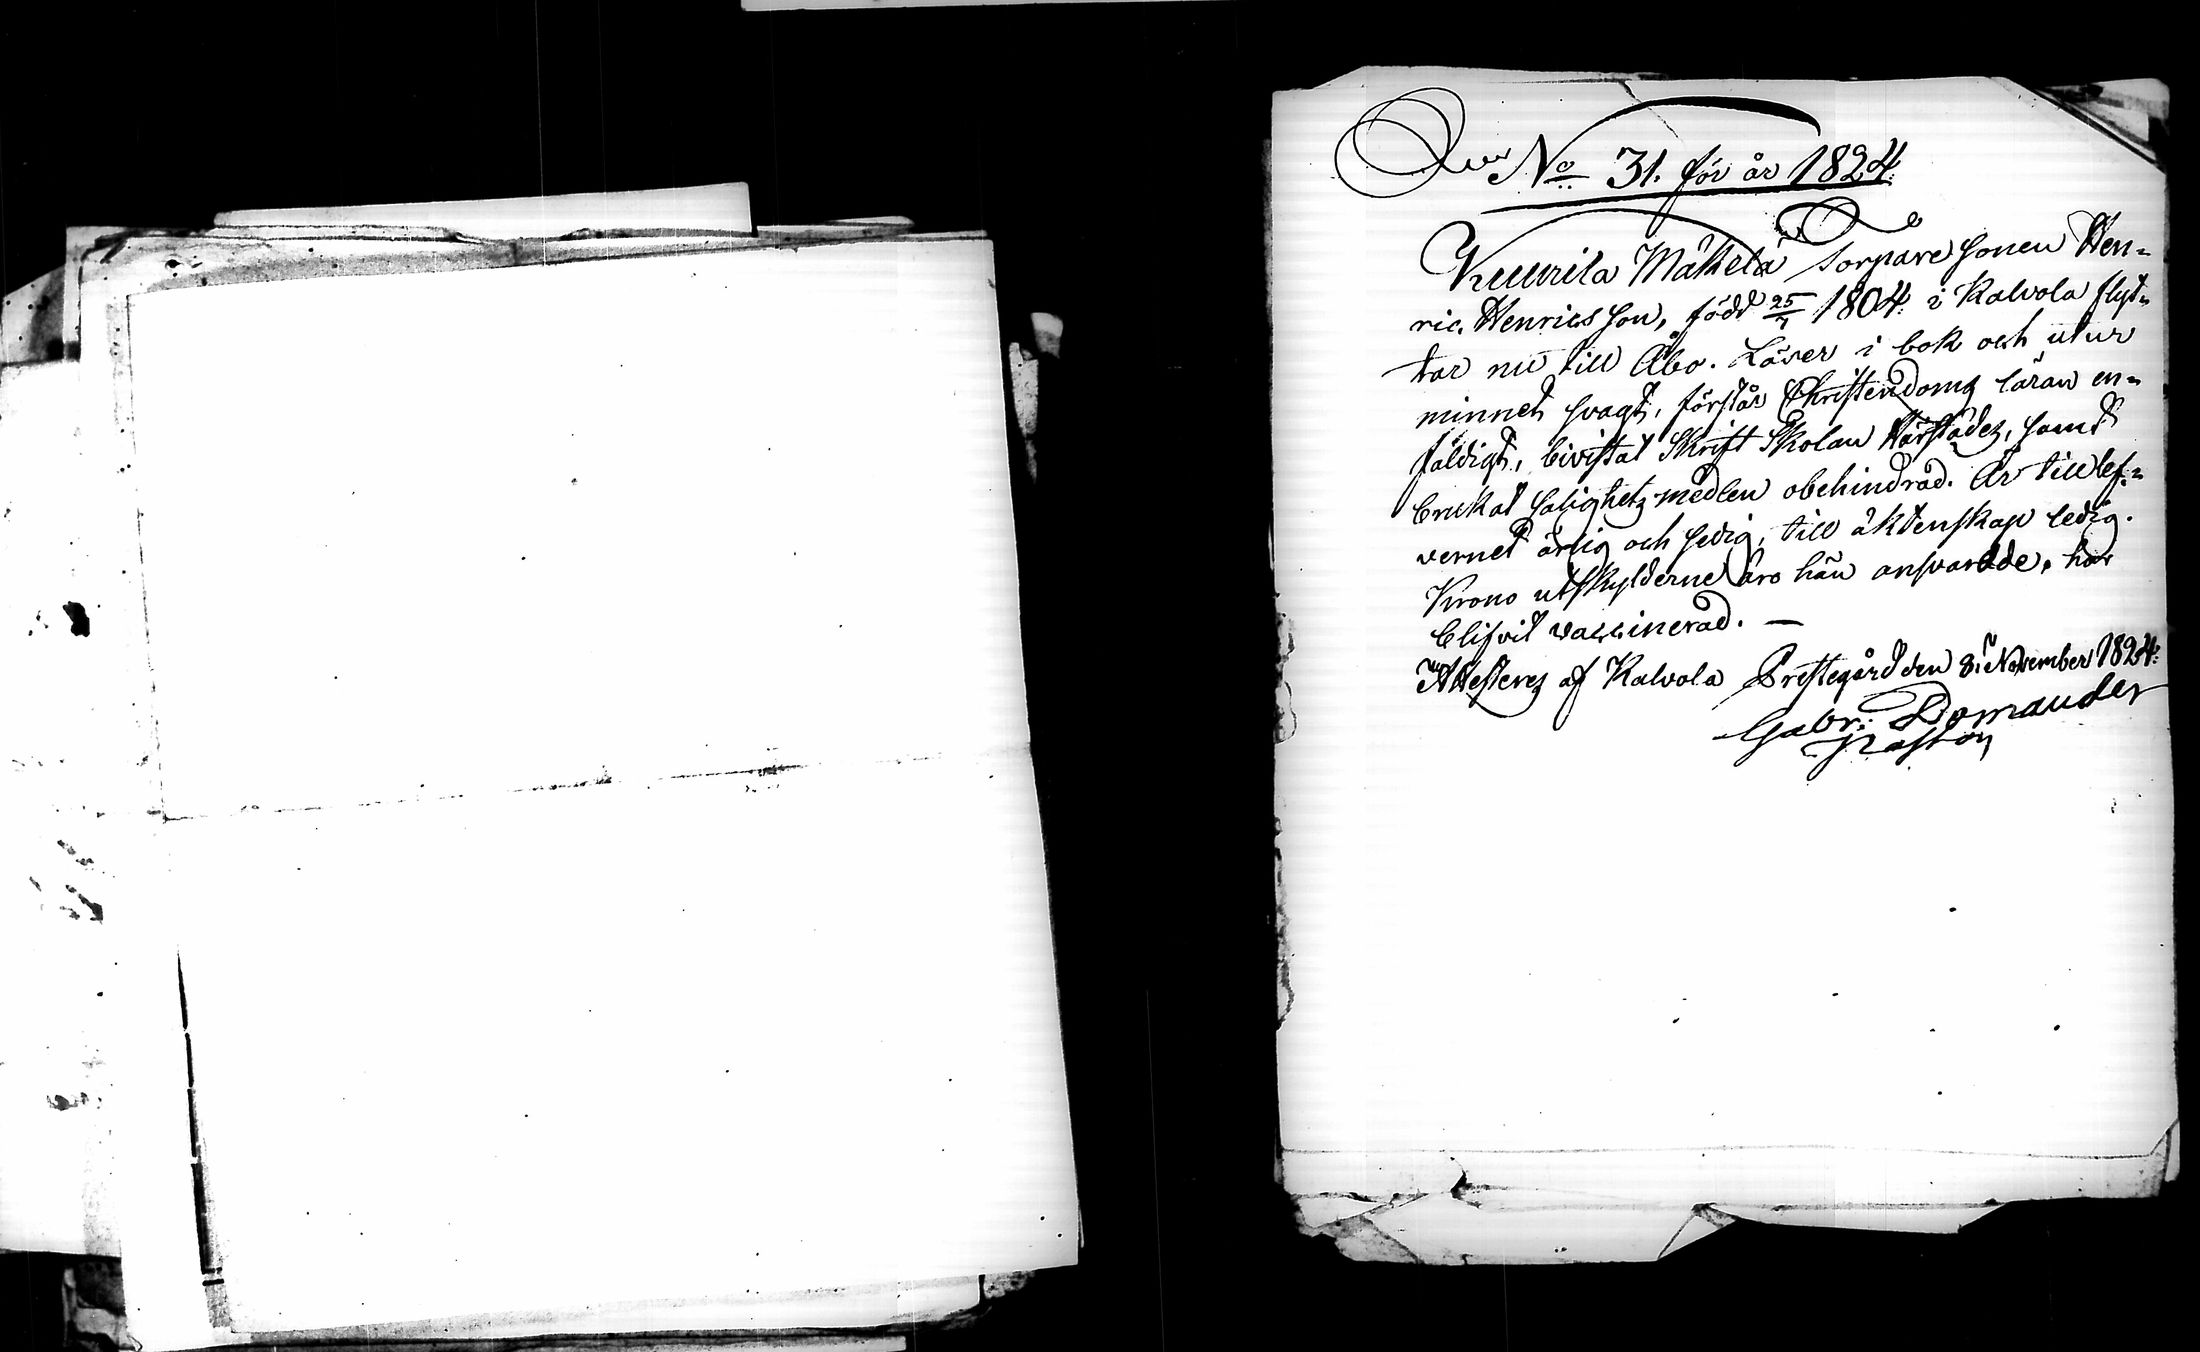 No 31. för år 1824.
Kuurila Mäkelä Torpare Sonen Hen=
ric Henricsson, född 25/7 1804 i Kalvola flyt=
tar nu till Åbo. Läser i bok och utur
minnet svagt, förstår Christendoms läran en=
faldigt, bivistat Skrift Skolan Härstädes, samt
brukat salighets medlen obehindrad. Är till lef=
vernet ärlig och sedig, till äktenskap ledig.
Krono utskylderne äro hän ansvarade, har
blifvit vaccinerad. —
Attesteras af Kalvola Prestegård den 8 November 1824.
Gabr: Pomander
Pastor